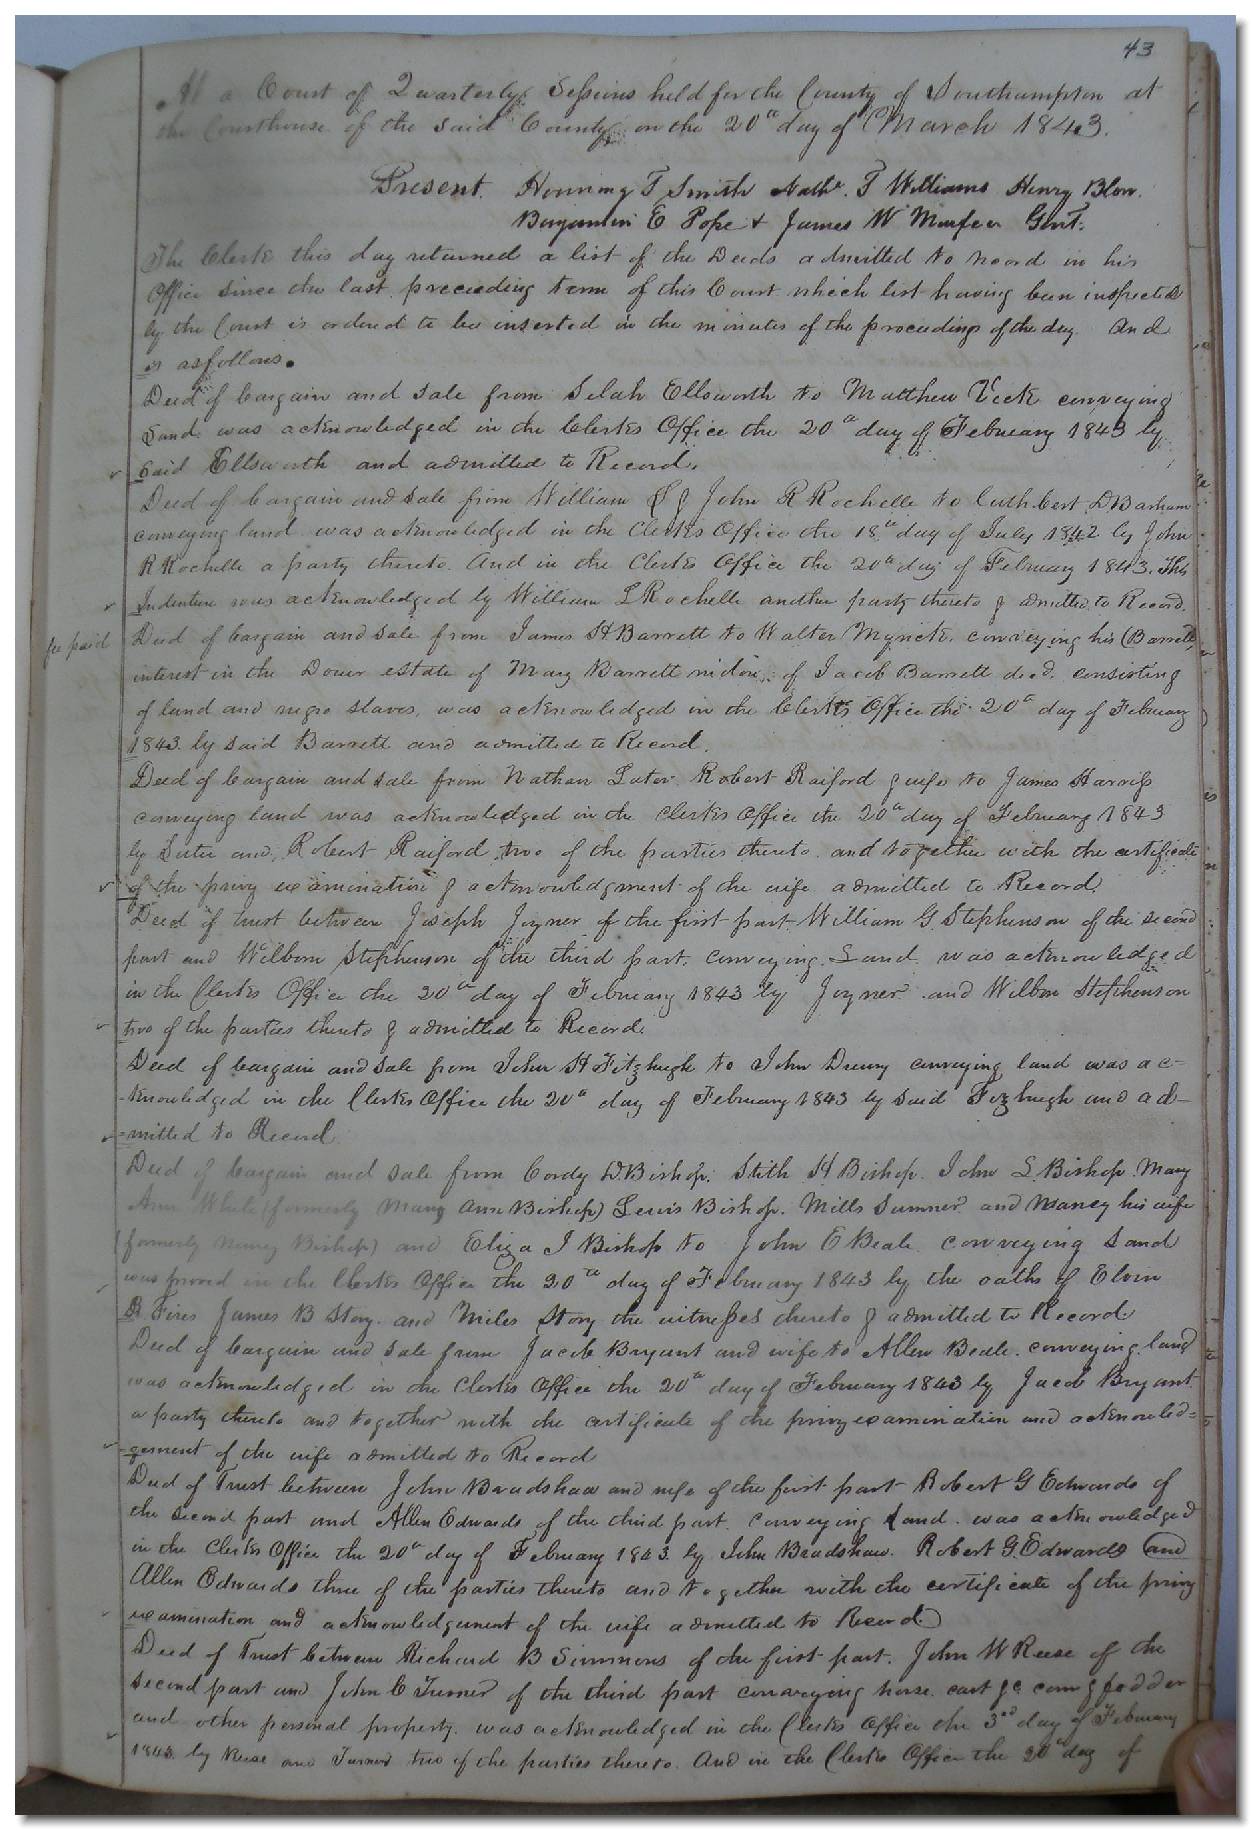 43
At a Court of Quarterly Sessions held for the County of Southampton at
the Courthouse of the said County on the 20th day of March 1843.
Present. T Smith Nathl. T Williams Henry Blow.
Benjamin E Pope & James W Murfee Gent.
The Clerk this day returned a list of the Deeds admitted to record in his
Office since the last preceeding term of this Court which list having been inspected
by the Court is ordered to be inserted in the minutes of the proceedings of the day. And
is as follows.
Deed of bargain and sale from Selah Ellsworth to Matthew Vick conveying
Land was acknowledged in the Clerks Office the 20th day of February 1843 by
Said Ellsworth and admitted to Record.
Deed of bargain and sale from William L & John R Rochelle to Cuthbert D Barham
conveying land was acknowledged in the Clerks Office the 18th day of July 1842 by John
R Rochelle a party thereto. And in the Clerks Office the 20th day of February 1843. This
Indenture was acknowledged by William L Rochelle another party thereto & admitted to Record.
fee paid
Deed of bargain and sale from James H Barrett to Walter Myrick. conveying his (Barretts
interest in the Dower estate of Mary Barrett widow of Jacob Barrett decd. consisting
of land and negro slaves, was acknowledged in the Clerks Office the 20th day of February
1843 by said Barrett and admitted to Record.
Deed of bargain and sale from Nathan Robert Raiford & wife to James Harriss
conveying land was acknowledged in the Clerks Office the 20th day of February 1843
by and Robert Raiford two of the parties thereto. and together with the certificate
of the privy examination & acknowledgment of the wife admitted to Record.
Deed of trust between Joseph Joyner of the first part William G Stephenson of the second
part and Wilborn Stephenson of the third part. conveying Land was acknowledged
in the Clerks Office the 20th day of February 1843 by Joyner and Wilbon Stephenson
two of the parties thereto & admitted to Record.
Deed of bargain and sale from John H Fitzhugh to John Drewry conveying land was ac-
-knowledged in the Clerks Office the 20th day of February 1843 by said Fitzhugh and ad-
-mitted to Record
Deed of bargain and sale from Cordy D Bishop. Stith H Bishop. John S. Bishop Mary
Ann White (formerly Mary Ann Bishop) Lewis Bishop. Mills Sumner and Nancy his wife
(formerly Nancy Bishop) and Eliza J Bishop to John E Beale conveying Land
was proved in the Clerks Office the 20th day of February 1843 by the oaths of Elvin
James B Story. and Miles Story the witnesses thereto & admitted to Record
Deed of bargain and sale from Jacob Bryant and wife to Allen Beale. conveying land
was acknowledged in the Clerks Office the 20th day of February 1843 by Jacob Bryant
a party thereto and together with the certificate of the privy examination and acknowled-
-gement of the wife admitted to Record
Deed of Trust between John Bradshaw and wife of the first part Robert G Edwards of
the second part and Allen Edwards of the third part. conveying Land. was acknowledged
in the Clerks Office the 20th day of February 1843 by John Bradshaw. Robert G. Edwards and
Allen Edwards three of the parties thereto and together with the certificate of the privy
examination and acknowledgement of the wife admitted to Record.
Deed of Trust between Richard B Simmons of the first part. John W Reese of the
second part and John C Turner of the third part conveying horse. cart &c corn & fodder
and other personal property. was acknowledged in the Clerks Office the 3rd day of February
1843 by Reese and Turner two of the parties thereto. And in the Clerks Office the 20th day of